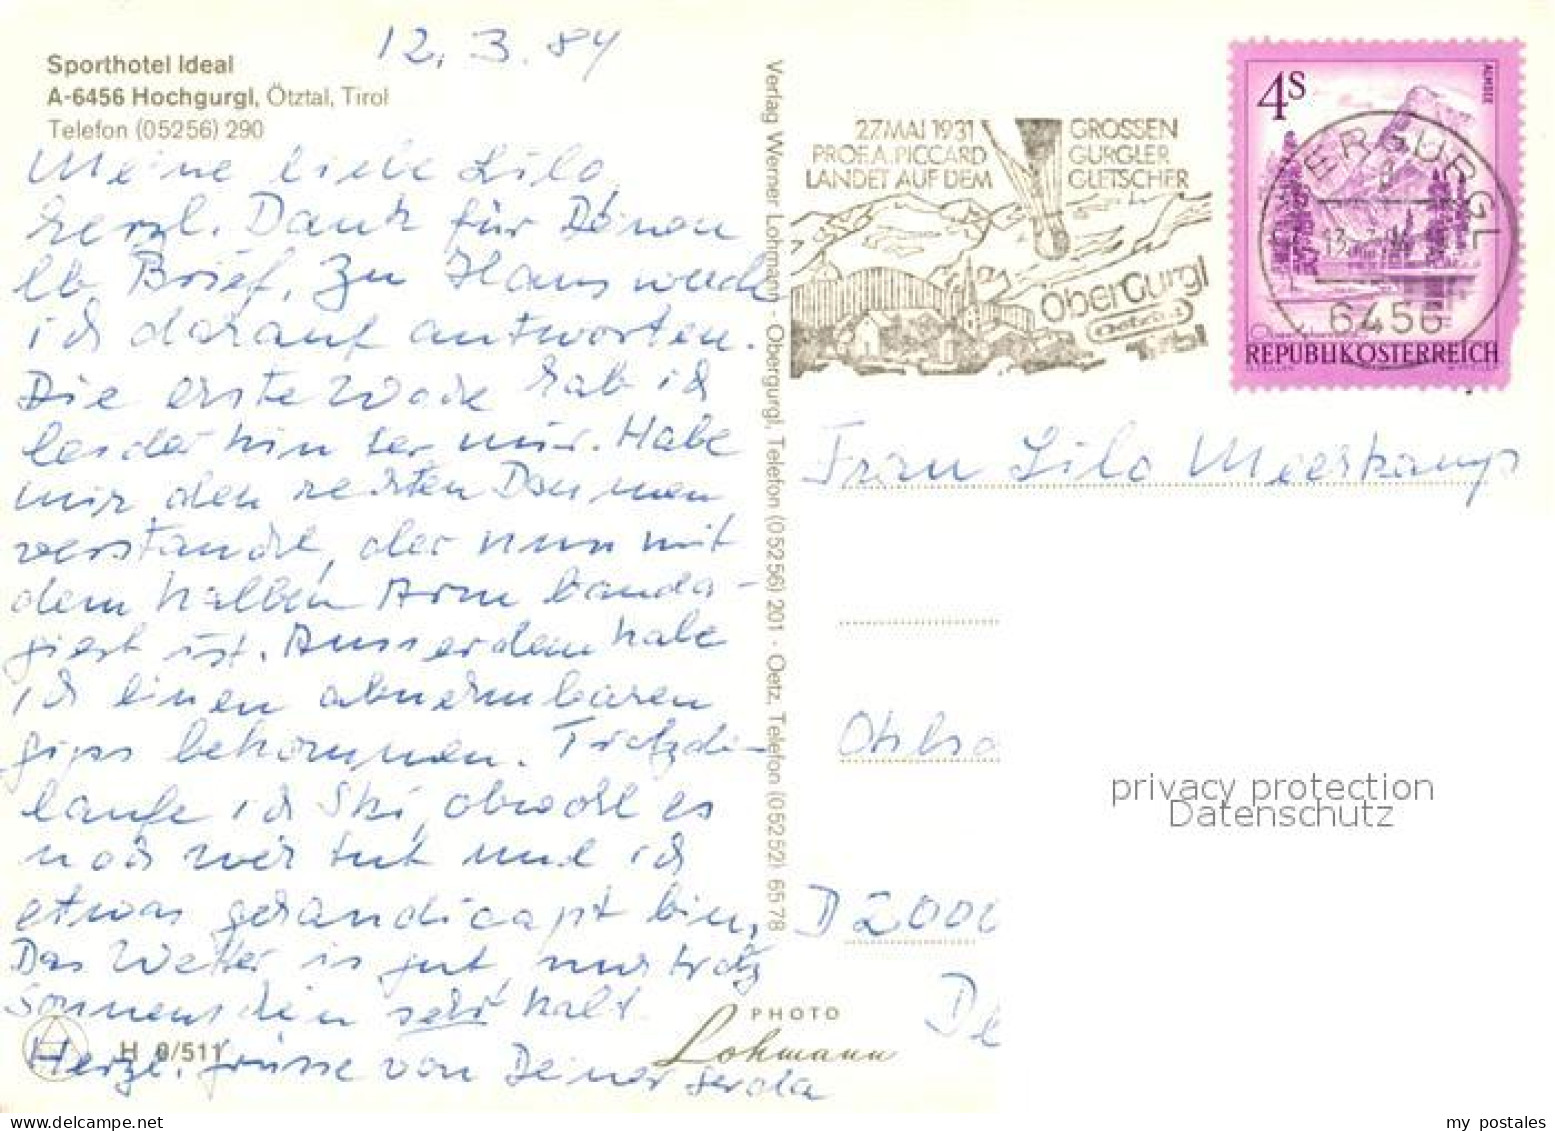 12. 3. 84
Sporthotel Ideal
A-6456 Hochgurgl, Ötztal, Tirol
Telefon (05256) 290
Meine liebe Lilo,
herzl. Dank für Deinen
lb Brief, zu Haus werde
ich darauf antworten.
Die erste Woche hab ich
leider hinter mir. Habe
mir den rechten Daumen
verstaucht, der nun mit
dem halben Arm banda-
giert ist. Ausserdem habe
ich einen abnehmbaren
gips bekommen. Trotzdem
laufe ich Ski, obwohl es
noch weh tut und ich
etwas gehandicapt bin,
Das Wetter is gut, nur trotz
Sonnenschein sehr kalt.
Herzl. grüsse von Deiner Gerda
H 9/511
PHOTO
Lohmann
Verlag Werner Lohmann · Obergurgl, Telefon (05256) 201 · Oetz, Telefon (05252) 6578
27.MAI 1931 GROSSEN
PROF.A.PICCARD GURGLER
LANDET AUF DEM GLETSCHER
OberGurgl
Tirol
4S
ALMSEE
OBERGURGL
6456
REPUBLIK ÖSTERREICH
Frau Lilo Meerkamp
D 2000
privacy protection
Datenschutz
my_postales